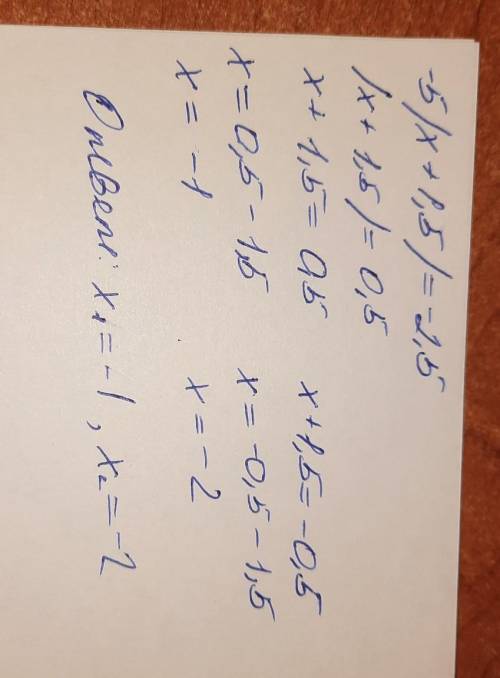 -5|x + 1,5| = -2,5
|x + 1,5| = 0,5
x + 1,5 = 0,5 x + 1,5 = -0,5
x = 0,5 - 1,5 x = -0,5 - 1,5
x = -1 x = -2
Ответ: x₁ = -1, x₂ = -2